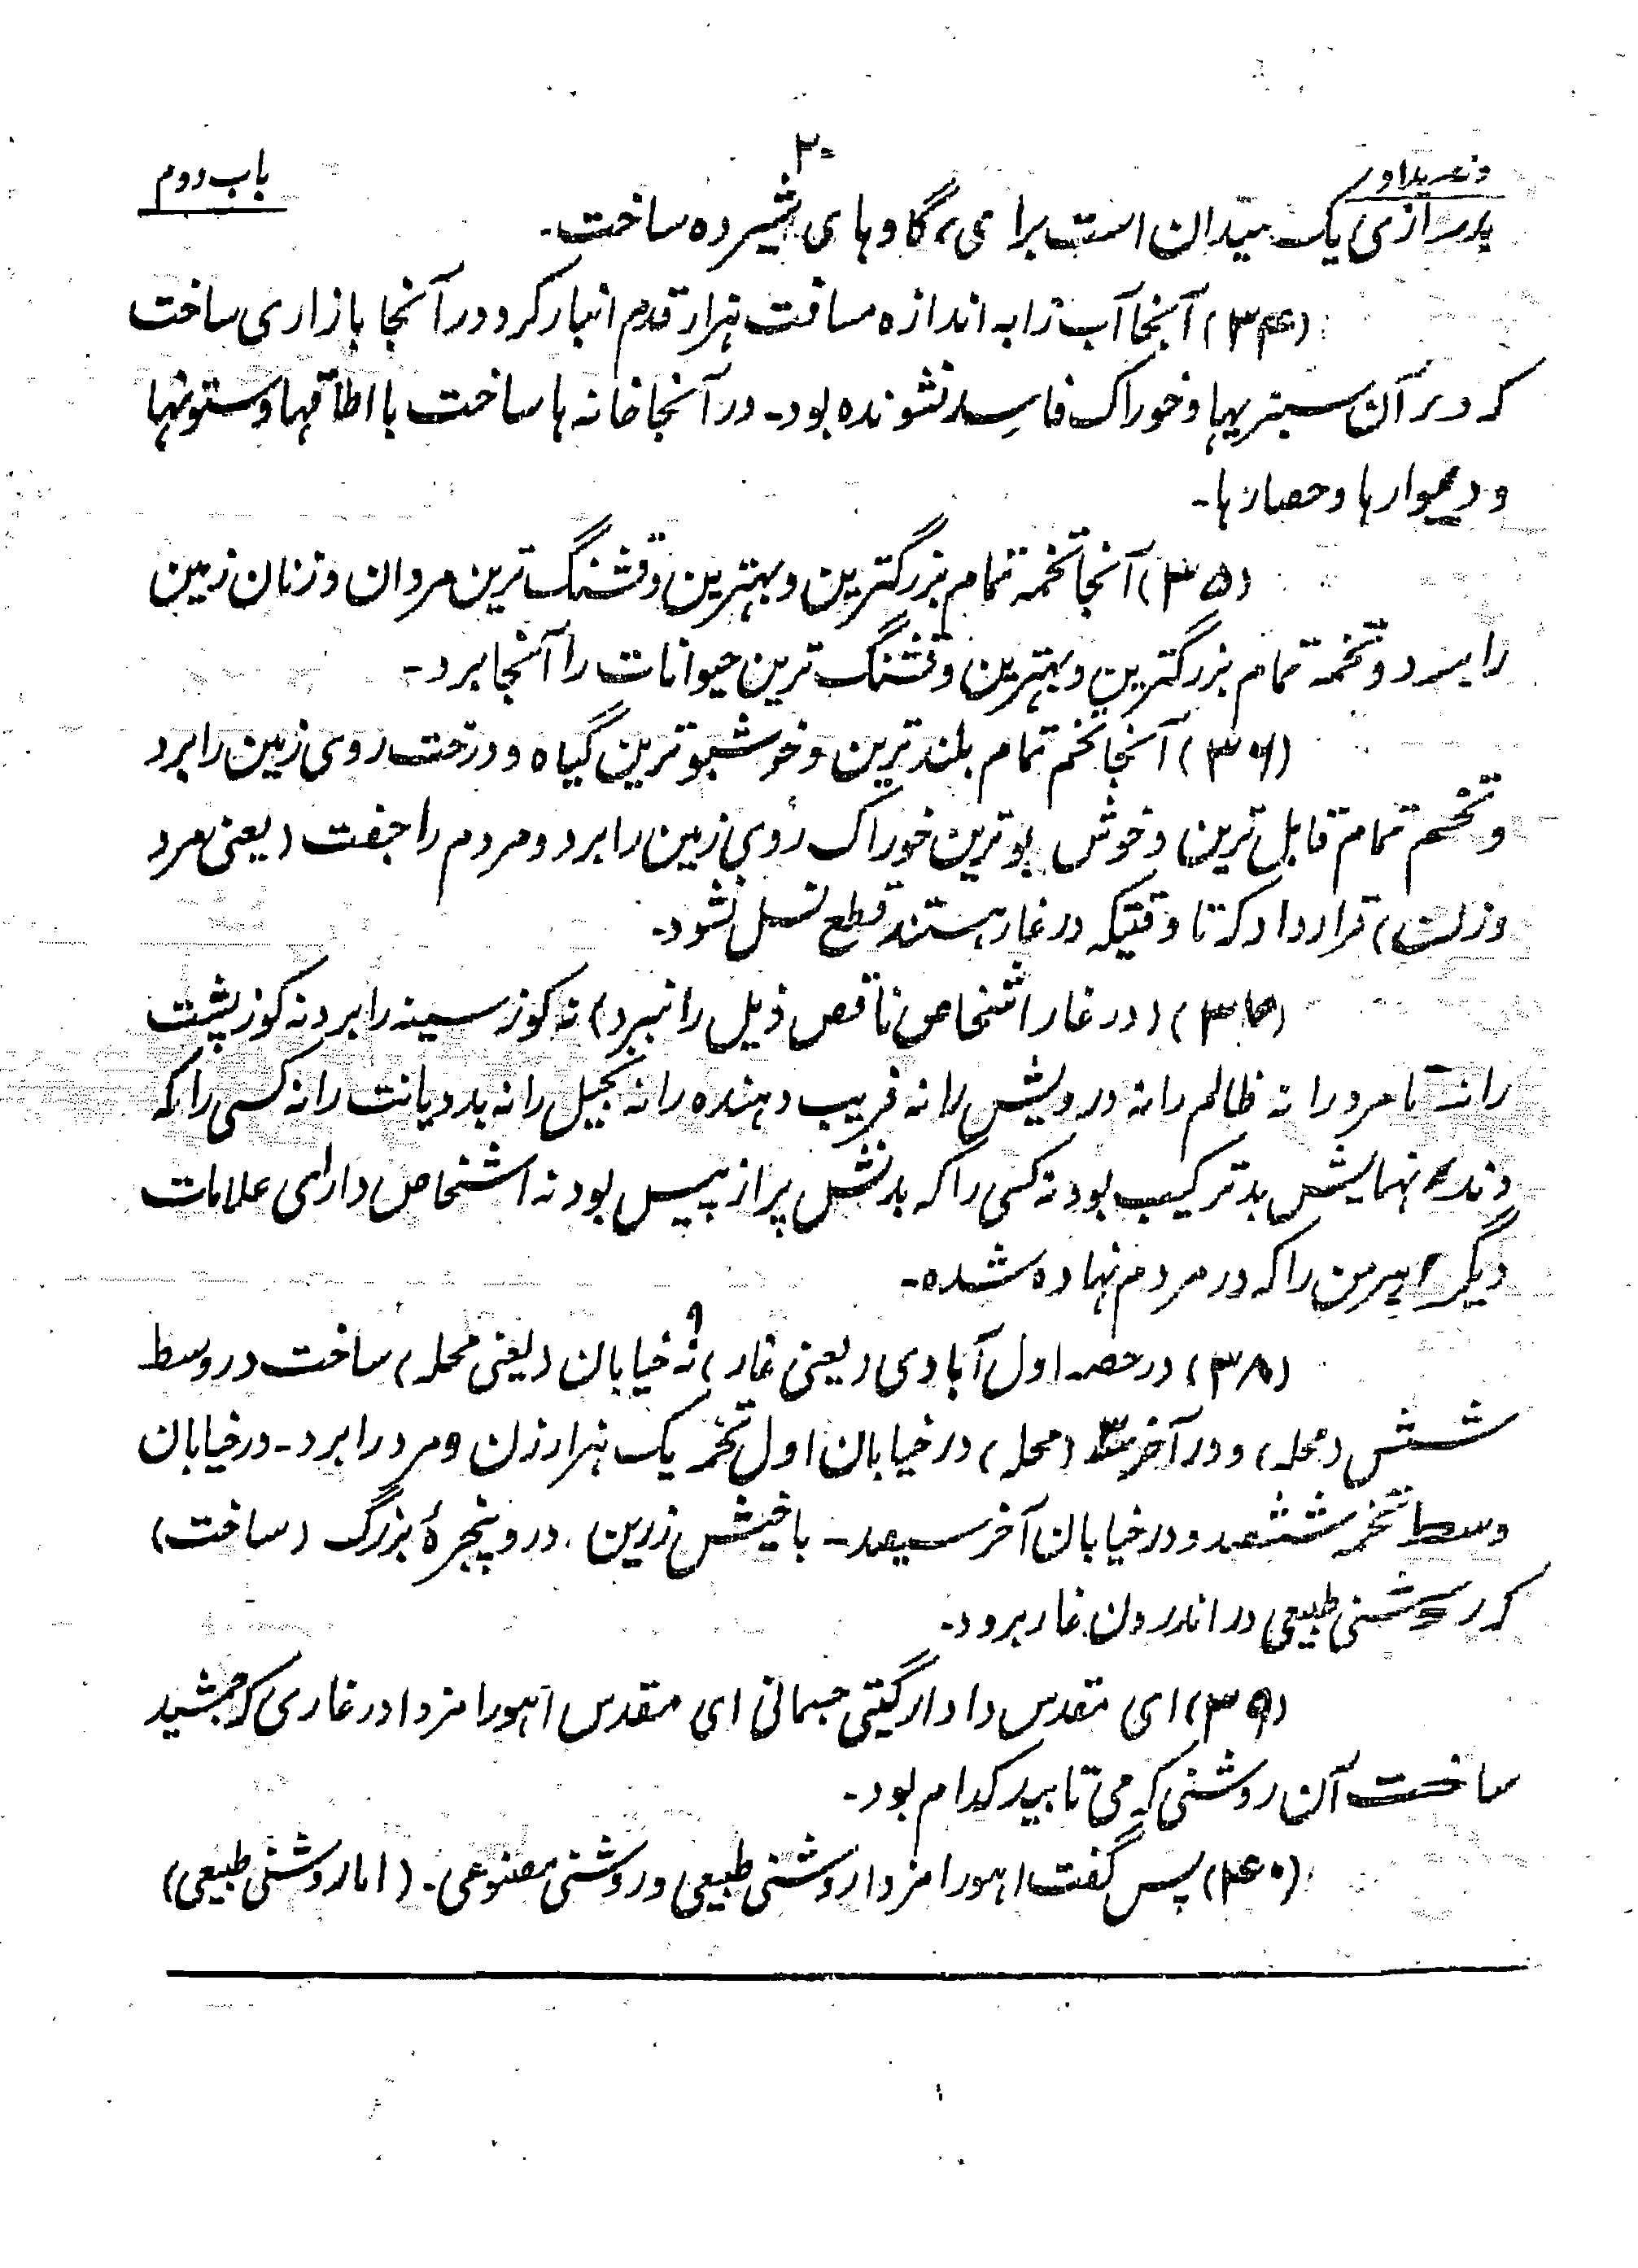 ۲۰
وندیداد
باب دوم
بدرازی یک میدان است برای گاوهای شیرده ساخت۔
(۳۴) آنجا آب را به اندازه مسافت هزار قدم انبار کرد و در آنجا بازاری ساخت
که در آن سبزیها و خوراک فاسد نشونده بود۔ در آنجا خانه ها ساخت با اطاقها و ستونها
و دیوارها و حصارها۔
(۳۵) آنجا تخمه تمام بزرگترین و بهترین و قشنگ ترین مردان و زنان زمین
را برد و تخمه تمام بزرگترین و بهترین و قشنگ ترین حیوانات را آنجا برد۔
(۳۶) آنجا تخم تمام بلندترین و خوشبوترین گیاه و درخت روی زمین را برد
و تخم تمام قابل ترین و خوش بوترین خوراک روی زمین را برد و مردم را جفت (یعنی مرد
و زن) قرار داد که تا وقتیکه در غار هستند قطع نسل نشود۔
(۳۷) (در غار اشخاص ناقص ذیل را نبرد) نه کوز سینه را برد نه کوز پشت
را نه نامرد را نه ظالم را نه درویش را نه فریب دهنده را نه بخیل را نه بد دیانت را نه کسی را که
دندانهایش بدترکیب بود نه کسی را که بدنش پر از پیس بود نه اشخاص دارای علامات
دیگر اهریمن را که در مردم نهاده شده۔
(۳۸) در حصه اول آبادی (یعنی غار) نه ۹ خیابان (یعنی محله) ساخت در وسط
شش (محله) و در آخر سه (محله) در خیابان اول تخمه یک هزار زن و مرد را برد۔ در خیابان
وسط تخمه ششصد و در خیابان آخر سیصد۔ با خیش زرین در و پنجرۀ بزرگ (ساخت)
که روشنی طبیعی در اندرون غار برود۔
(۳۹) ای مقدس دادار گیتی جسمانی ای مقدس اهورا مزدا در غاری که جمشید
ساخت آن روشنی که می تابید کدام بود۔
(۴۰) پس گفت اهورا مزدا روشنی طبیعی و روشنی مصنوعی۔ (اما روشنی طبیعی)